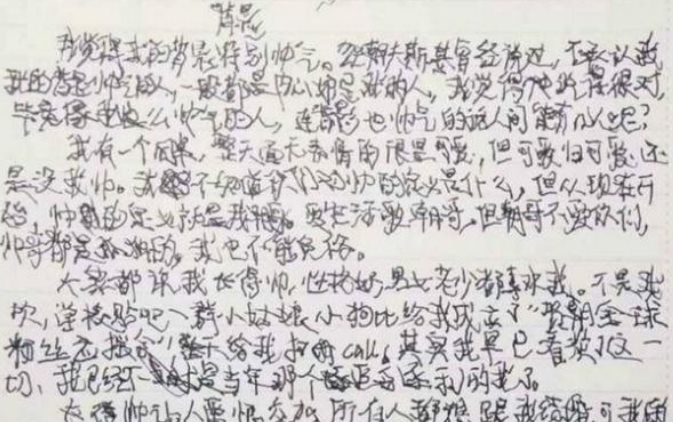 背影
我觉得我的背影特别帅气。经朝夫斯基曾经说过,不承认我
我的背影帅的人,一般都是内心妒忌我的人,我觉得他说得很对,
毕竟像我这么帅气的人,连背影也帅气的这人间能有几人呢?
我有一个同桌,整天面无表情的很是可爱,但可爱归可爱,还
是没我帅。我不知道你们对帅的定义是什么,但从现在开
始,帅的定义就是我。要生活歌朝哥,但朝哥不爱你们,
帅哥都是孤独的,我也不能免俗。
大家都说我长得帅,性格好,男女老少都喜欢我。不是我
吹,学校贴吧一群小姑娘小狗比给我成立了"朝全球
粉丝后援会"整天给我打call,其实我早已看淡了这一
切,我已经不是当年那个的我了。
长得帅让人爱恨交加,所有人都想跟我结婚,可我的